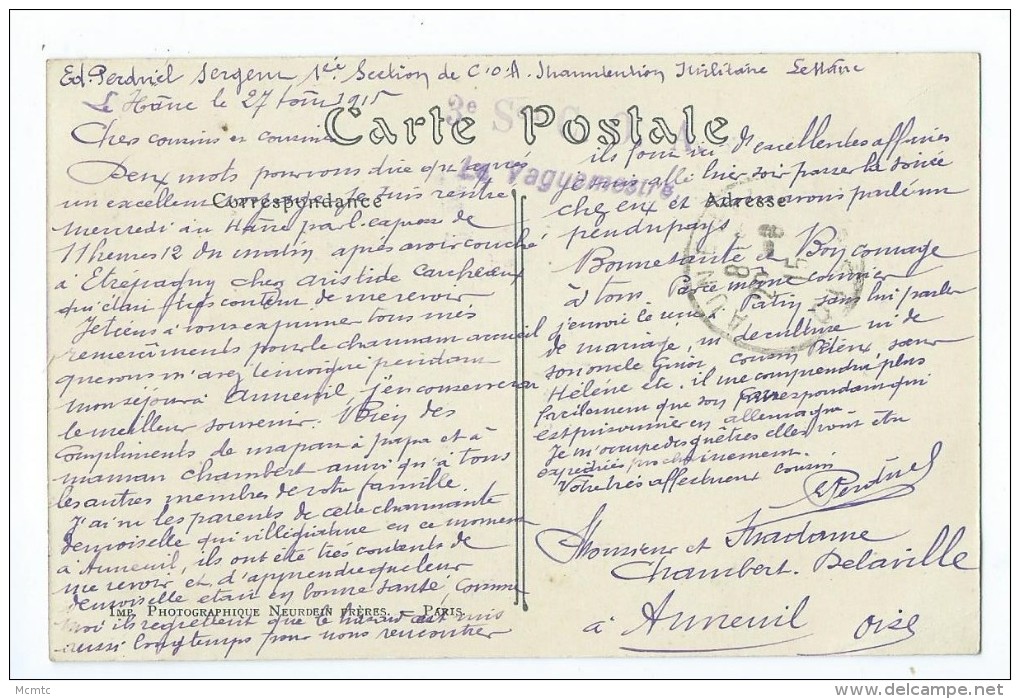 Ed. Perdriel Sergent 1ère Section de C.O.A. Manutention Militaire Le Hâvre
Le Hâvre le 27 Août 1915
Carte Postale
3e S C.O.A.
Le Vaguemestre
Correspondance
Chers cousins et cousine
Deux mots pour vous dire qu'après
un excellent voyage je suis rentré
mercredi au Hâvre par l'express de
11 heures 12 du matin, après avoir couché
à Etrépagny chez Aristide Carcheaux
qui était très content de me revoir.
Je tiens à vous exprimer tous mes
remerciments pour le charmant accueil
que vous m'avez témoigné pendant
mon séjour à Auneuil, j'en conserverai
le meilleur souvenir. Bien des
compliments de ma part à papa et à
maman Chambert ainsi qu'à tous
les autres membres de votre famille.
J'ai vu les parents de cette charmante
demoiselle qui villégiature en ce moment
à Auneuil, ils ont été très contents de
me revoir et d'apprendre que leur
demoiselle était en bonne santé, comme
moi ils regrettent que le hasard ait mis
aussi longtemps pour nous rencontrer
Imp. Photographique Neurdein Frères. — Paris.
Adresse
ils font ici d'excellentes affaires
je suis allé hier soir passer la soirée
chez eux et nous avons parlé un
peu du pays.
Bonne santé et Bon courage
à tous. Par ce même courrier
j'envoie le une, Patin, sans lui parler
de mariage, ni de culture ni de
son oncle cousin Péteux, sœur
Hélène etc. il me comprendra plus
facilement que son correspondant qui
est prisonnier en allemagne.
Je m'occupe des guêtres elles vont être
expédiées prochainement.
Votre très affectueux cousin
EPerdriel
Monsieur et Madame
Chambert-Delaville
à Auneuil
Oise
Mcmtc
www.delcampe.net